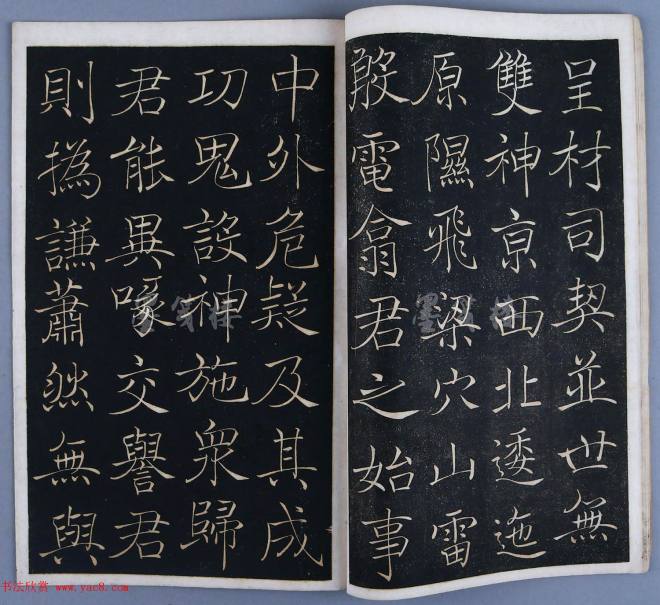 呈材司契並世無
雙神京西北逶迤
原隰飛梁穴山雷
殷電翕君之始事
中外危疑及其成
功鬼設神施衆歸
君能異喙交譽君
則撝謙蕭然無與
书法欣赏 www.yac8.com